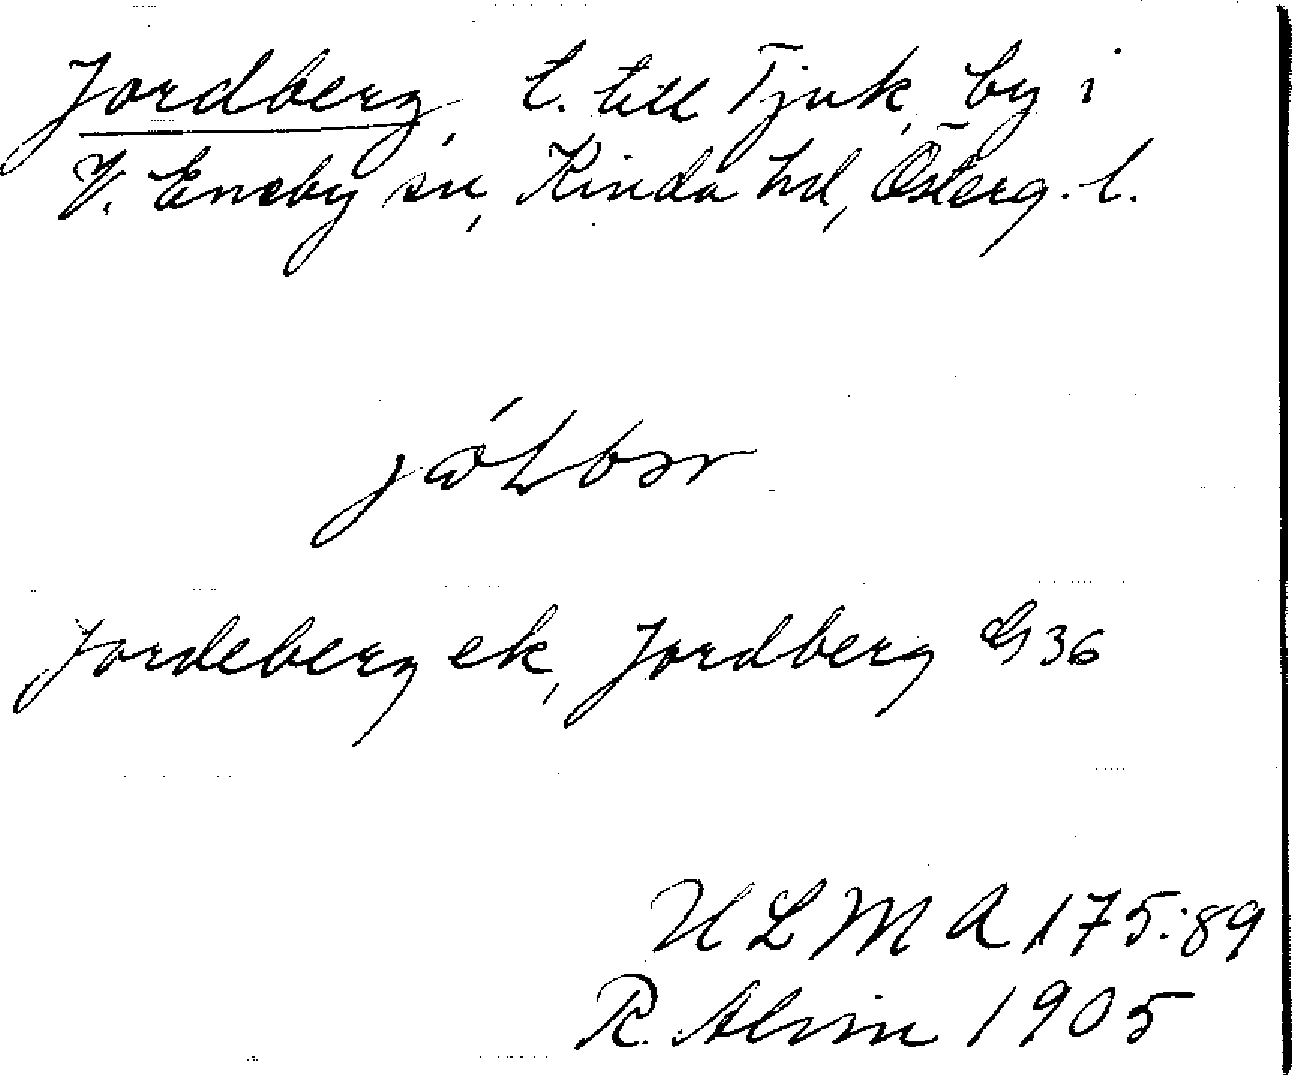 Jordberg, t. till Tjuk, by i
V. Eneby sn, Kinda hd, Österg. l.
Jordeberg ek, Jordberg G 36
ULMA 175:89
R. Alvin 1905